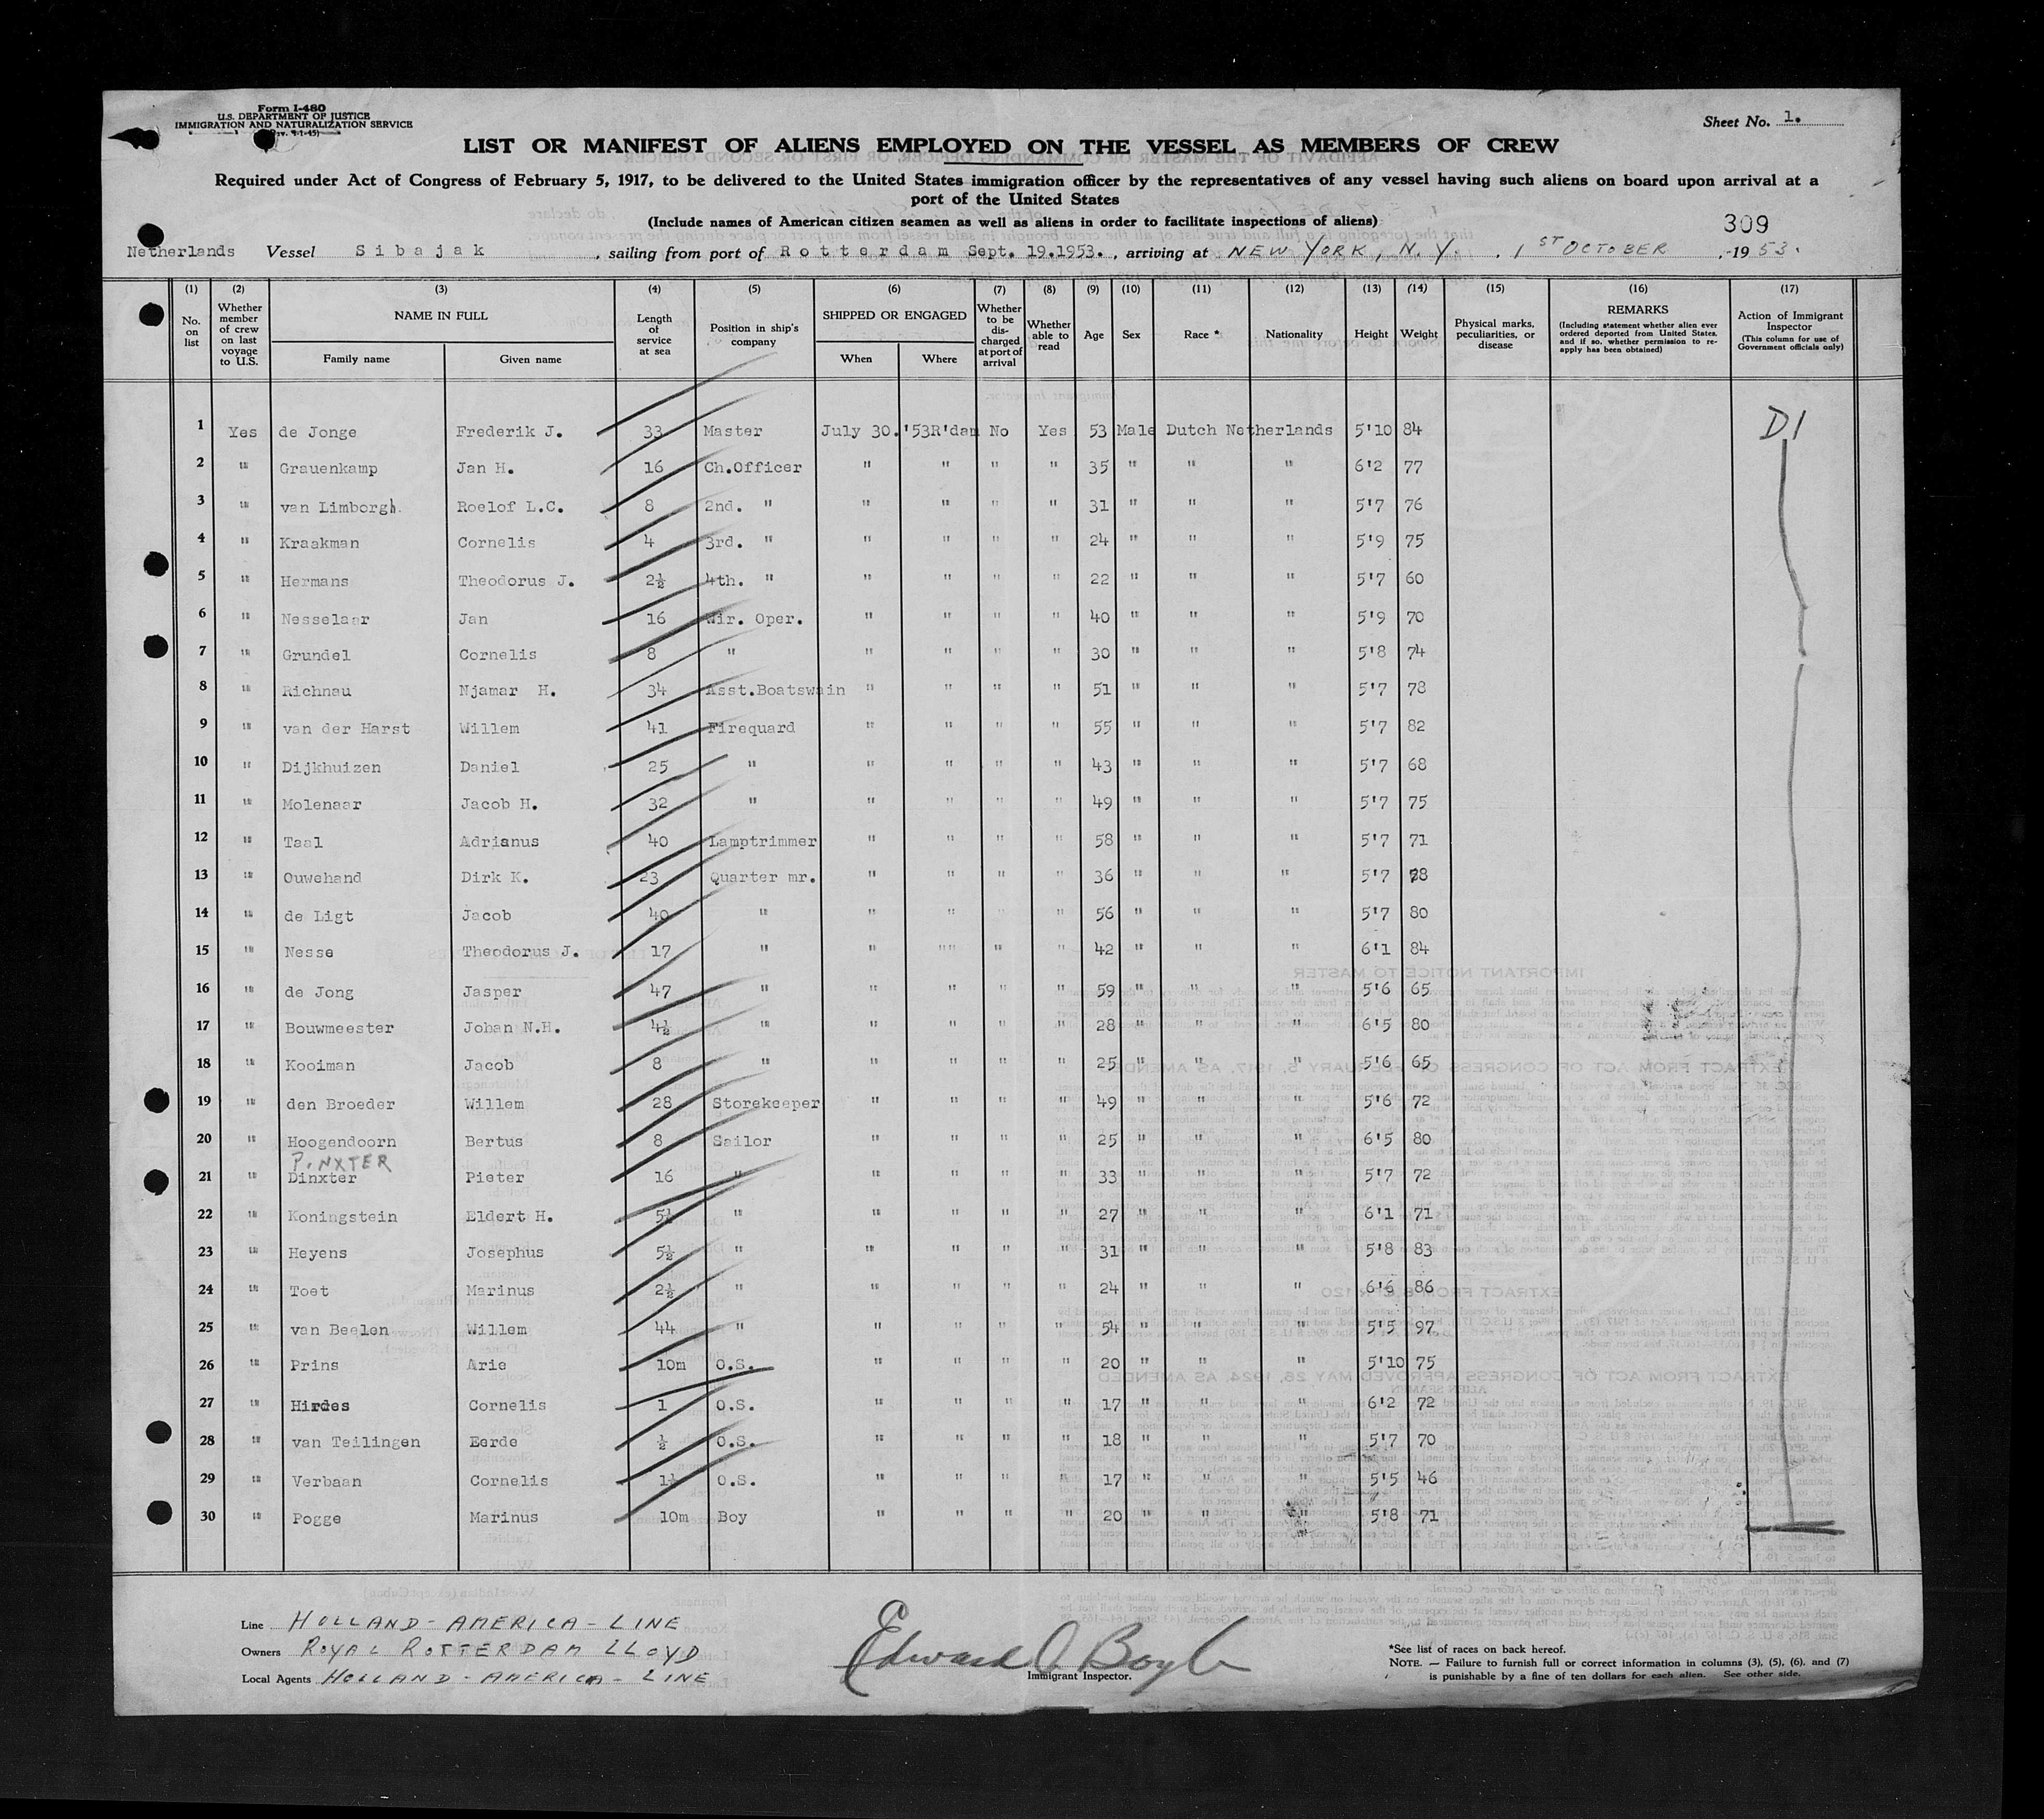 Form I-480
U.S. DEPARTMENT OF JUSTICE
IMMIGRATION AND NATURALIZATION SERVICE
(Rev. 9-1-45)
Sheet No. 1.
LIST OR MANIFEST OF ALIENS EMPLOYED ON THE VESSEL AS MEMBERS OF CREW
Required under Act of Congress of February 5, 1917, to be delivered to the United States immigration officer by the representatives of any vessel having such aliens on board upon arrival at a
port of the United States
(Include names of American citizen seamen as well as aliens in order to facilitate inspections of aliens)
309
Netherlands Vessel Sibajak, sailing from port of Rotterdam Sept. 19.1953., arriving at NEW YORK, N.Y. , 1ST OCTOBER, 1953.
(1) (2) (3) (4) (5) (6) (7) (8) (9) (10) (11) (12) (13) (14) (15) (16) (17)
No. on list
Whether member of crew on last voyage to U.S.
NAME IN FULL
Family name
Given name
Length of service at sea
Position in ship's company
SHIPPED OR ENGAGED
When
Where
Whether to be discharged at port of arrival
Whether able to read
Age
Sex
Race *
Nationality
Height
Weight
Physical marks, peculiarities, or disease
REMARKS
(Including statement whether alien ever ordered deported from United States, and if so, whether permission to re-apply has been obtained)
Action of Immigrant Inspector
(This column for use of Government officials only)
D1
1 Yes de Jonge Frederik J. 33 Master July 30.'53 R'dam No Yes 53 Male Dutch Netherlands 5'10 84
2 " Grauenkamp Jan H. 16 Ch.Officer " " " " 35 " " " 6'2 77
3 " van Limborgh. Roelof L.C. 8 2nd. " " " " " 31 " " " 5'7 76
4 " Kraakman Cornelis 4 3rd. " " " " " 24 " " " 5'9 75
5 " Hermans Theodorus J. 2½ 4th. " " " " " 22 " " " 5'7 60
6 " Nesselaar Jan 16 Wir. Oper. " " " " 40 " " " 5'9 70
7 " Grundel Cornelis 8 " " " " " 30 " " " 5'8 74
8 " Richnau Njamar H. 34 Asst.Boatswain " " " " 51 " " " 5'7 78
9 " van der Harst Willem 41 Firequard " " " " 55 " " " 5'7 82
10 " Dijkhuizen Daniel 25 " " " " " 43 " " " 5'7 68
11 " Molenaar Jacob H. 32 " " " " " 49 " " " 5'7 75
12 " Taal Adrianus 40 Lamptrimmer " " " " 58 " " " 5'7 71
13 " Ouwehand Dirk K. 23 Quarter mr. " " " " 36 " " " 5'7
14 " de Ligt Jacob 40 " " " " " 56 " " " 5'7 80
15 " Nesse Theodorus J. 17 " " "" " " 42 " " " 6'1 84
16 " de Jong Jasper 47 " " " " " 59 " " " 5'6 65
17 " Bouwmeester Johan N.H. 4½ " " " " " 28 " " " 6'5 80
18 " Kooiman Jacob 8 " " " " " 25 " " " 5'6 65
19 " den Broeder Willem 28 Storekeeper " " " " 49 " " " 5'6 72
20 " Hoogendoorn Bertus 8 Sailor " " " " 25 " " " 6'5 80
PiNXTER
21 " Dinxter Pieter 16 " " " " " 33 " " " 5'7 72
22 " Koningstein Eldert H. 5½ " " " " " 27 " " " 6'1 71
23 " Heyens Josephus 5½ " " " " " 31 " " " 5'8 83
24 " Toet Marinus 2½ " " " " " 24 " " " 6'6 86
25 " van Beelen Willem 44 " " " " " 54 " " " 5'5 97
26 " Prins Arie 10m O.S. " " " " 20 " " " 5'10 75
27 " Hirdes Cornelis 1 O.S. " " " " 17 " " " 6'2 72
28 " van Teilingen Eerde ½ O.S. " " " " 18 " " " 5'7 70
29 " Verbaan Cornelis 1½ O.S. " " " " 17 " " " 5'5 46
30 " Pogge Marinus 10m Boy " " " " 20 " " " 5'8 71
Line HOLLAND-AMERICA-LINE
Owners ROYAL ROTTERDAM LLOYD
Local Agents HOLLAND-AMERICA-LINE
Edward J. Boyle
Immigrant Inspector.
*See list of races on back hereof.
NOTE. — Failure to furnish full or correct information in columns (3), (5), (6), and (7)
is punishable by a fine of ten dollars for each alien. See other side.